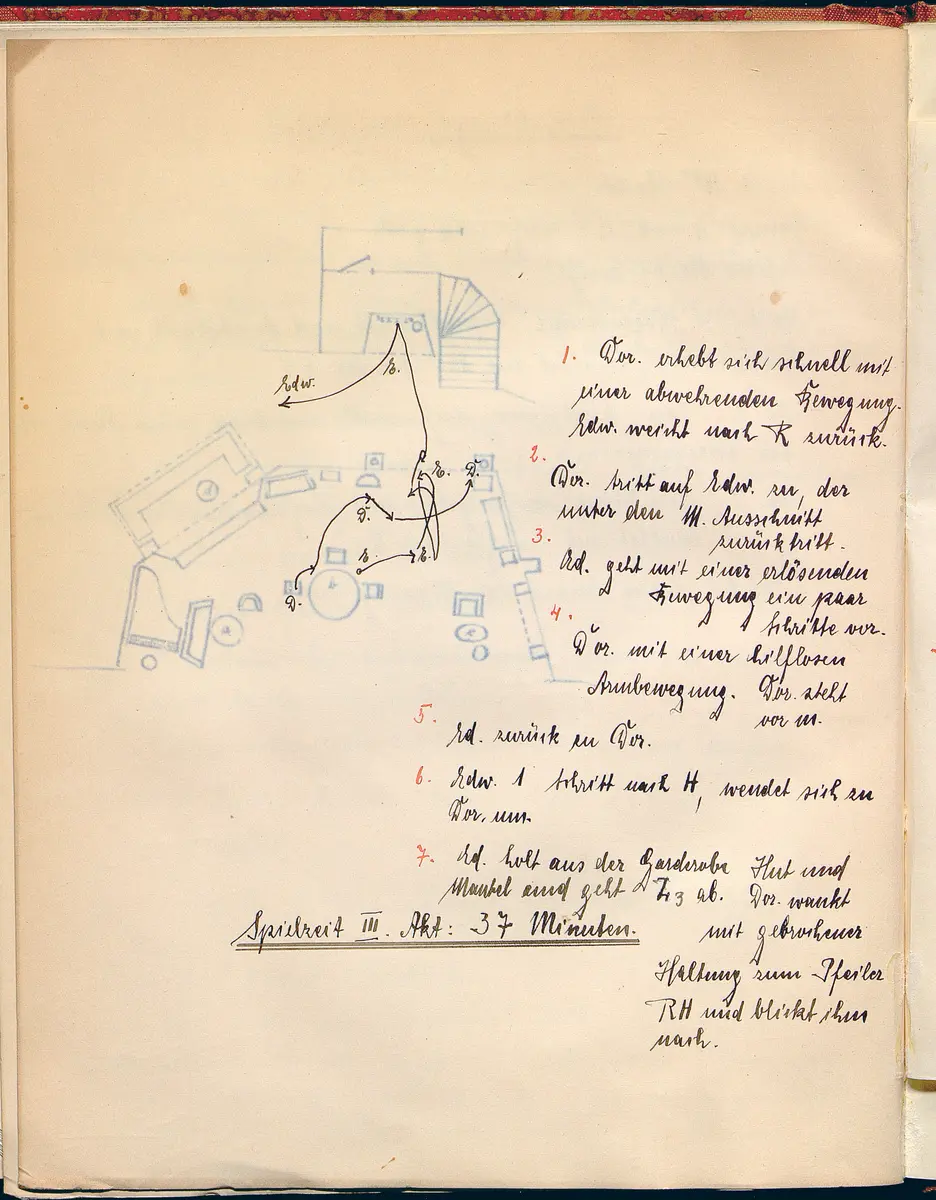 Edw.
E.
E.
D.
D.
E.
E.
D.
1. Dor. erhebt sich schnell mit
einer abwehrenden Bewegung.
Edw. weicht nach R zurück.
2. Dor. tritt auf Edw. zu, der
unter den M. Ausschnitt
zurücktritt.
3. Ed. geht mit einer erlösenden
Bewegung ein paar
Schritte vor.
4. Dor. mit einer hilflosen
Armbewegung. Dor. steht
vor m.
5. Ed. zurück zu Dor.
6. Edw. 1 Schritt nach H, wendet sich zu
Dor. um.
7. Ed. holt aus der Garderobe Hut und
Mantel und geht 3 ab. Dor. wankt
mit gebrochener
Haltung zum Pfeiler
RH und blickt ihm
nach.
Spielzeit III. Akt: 37 Minuten.